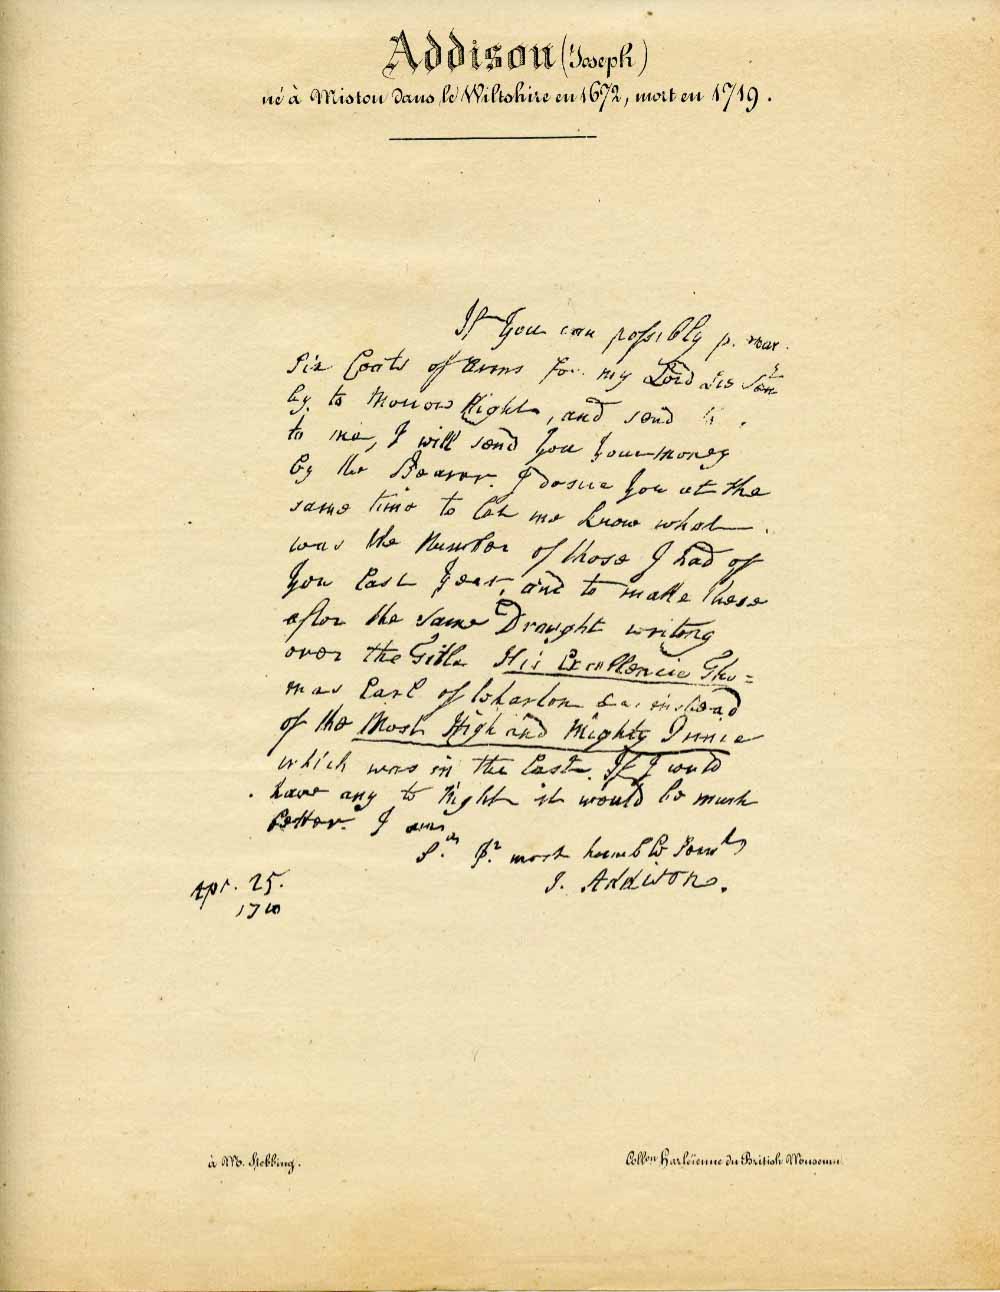 Addison (Joseph)
né à Miston dans le Wiltshire en 1672, mort en 1719.
If You can possibly
Six Coats of Arms for my Lord
by to Morrow Night, and send
to me, I will send You Your money
by the Bearer. I desire You at the
same time to let me know what
was the Number of those I had of
You last Year, and to make these
after the same Draught writing
over the Title His Excellencie Tho=
mas Earl of Wharton &c. instead
of the Most High and Mighty Prince
which was in the last. If I could
have any to Night it would be much
better. I am
Sr. Yr. most humble
J. Addison.
Apr. 25.
1710
à M. Stebbing.
Collon Harleïenne du British Mouseum.